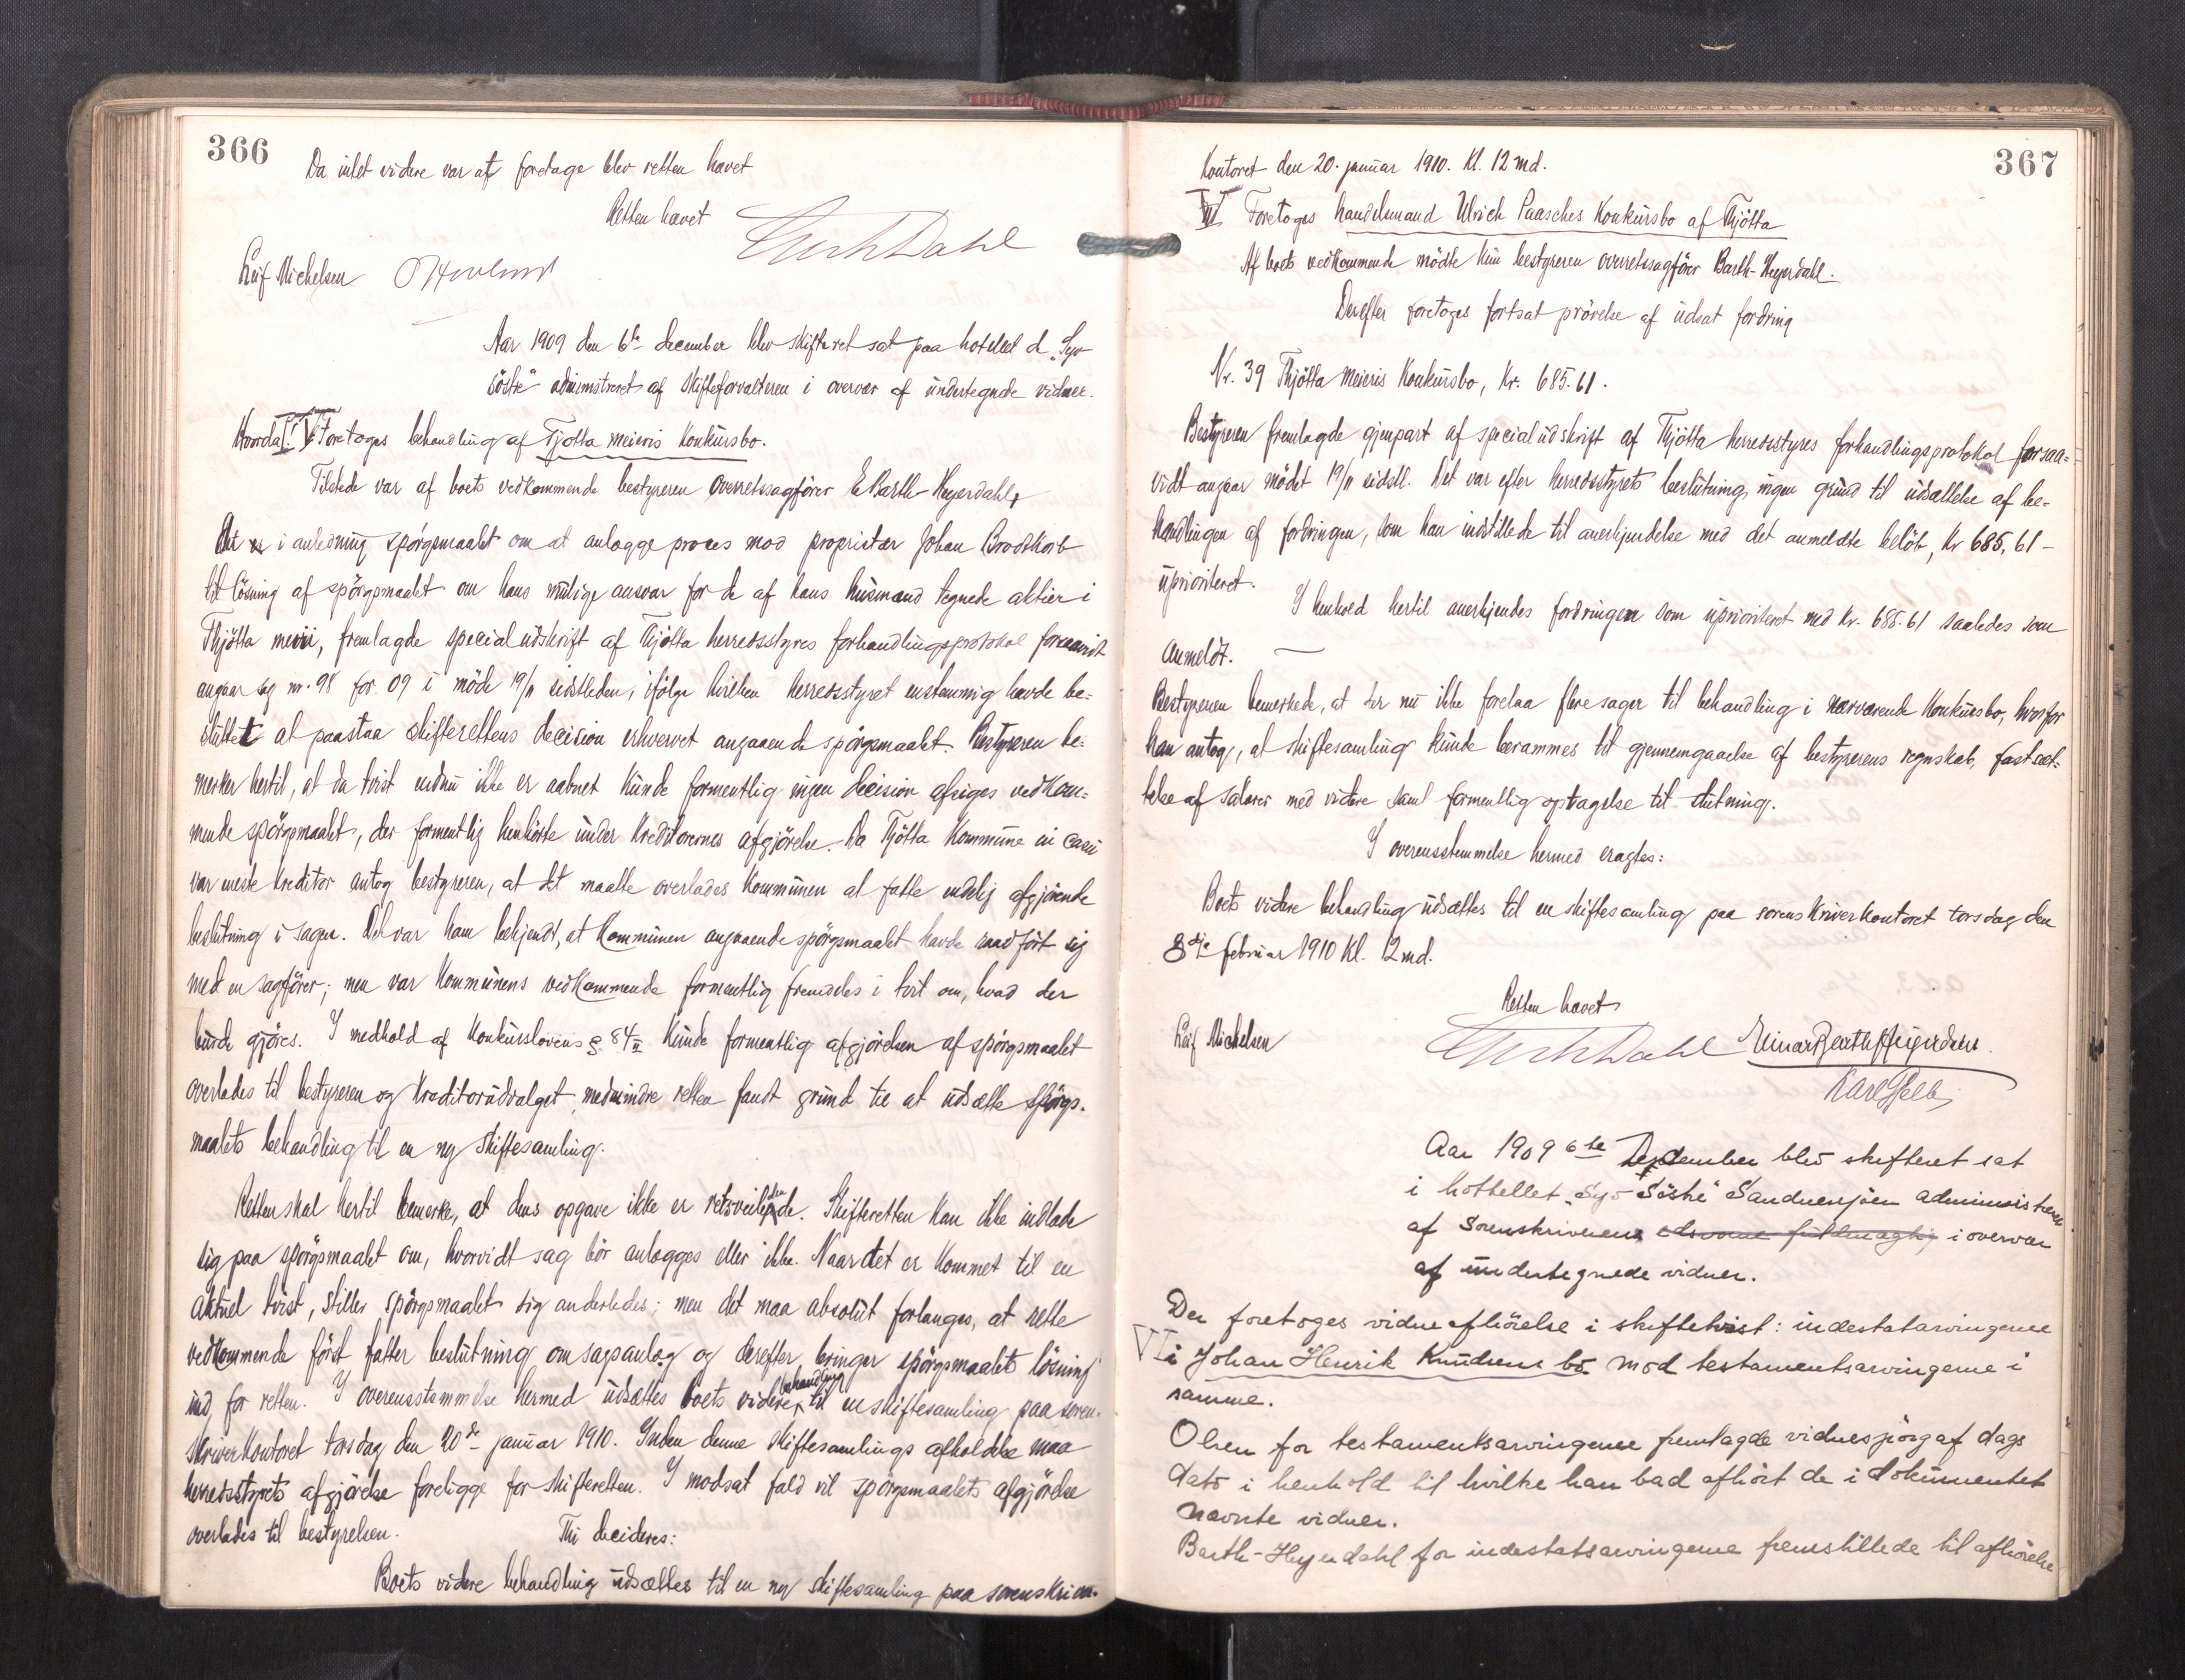 366
Da intet videre var at foretage blev retten hævet
Retten hævet
Leif Michelsen
Aar 1909 den 6te december blev skifteret sat paa hotellet d. "Syv
söstre" administreret af skifteforvalteren i overvær af undertegnede vidner.
Hvorda: V Foretoges behandling af Tjøtta meieris Konkursbo.
Tilstede var af boets vedkommende bestyreren overretssagförer E Barth-Heyerdahl,
Det i anledning spörgsmaalet om at anlægge proces mod proprietær Johan Brodtkorb
til lösning af spörgsmaalet om hans mulige ansvar for de af hans husmænd tegnede aktier i
Thjötta meieri, fremlagde specialudskrift af Thjötta herredsstyres forhandlingsprotokol forsaavidt
angaar sag nr. 98 for 09 i möde 19/11 sidstleden, ifölge hvilken herredsstyret enstemmig havde be-
sluttet at paastaa skifterettens decision erhvervet angaaende spörgsmaalet. Bestyreren be-
merker hertil, at da tvist endnu ikke er aabnet kunde formentlig ingen decision afsiges vedkom-
mende spörgsmaalet, der formentlig henhörte under kreditorernes afgjörelse. Da Tjötta Kommune in casu
var meste kreditor antog bestyreren, at det maatte overlades Kommunen at fatte endelig afgjörende
beslutning i sagen. Det var ham bekjendt, at Kommunen angaaende spörgsmaalet havde raadfört sig
med en sagförer; men var Kommunens vedkommende formentlig fremdeles i tvil om, hvad der
burde gjöres. I medhold af Konkurslovens § 84 II kunde formentlig afgjörelsen af spörgsmaalet
overlades til bestyreren og Kreditorudvalget, medmindre retten fandt grund til at udsætte spörgs-
maalets behandling til en ny skiftesamling.
Retten skal hertil bemerke, at dens opgave ikke er retsveiledende. Skifteretten kan ikke indlade
sig paa spörgsmaalet om, hvorvidt sag bör anlægges eller ikke. Naar det er kommet til en
aktuel tvist, stiller spörgsmaalet sig anderledes; men det maa absolut forlanges, at rette
vedkommende först fatter beslutning om sagsanlæg og derefter bringer spörgsmaalets lösning
ind for retten. I overensstemmelse hermed udsættes boets videre behandling til en skiftesamling paa soren-
skriverkontoret torsdag den 20de januar 1910. Inden denne skiftesamlings afholdelse maa
herredsstyrets afgjörelse foreligge for skifteretten. I modsat fald vil spörgsmaalets afgjörelse
overlades til bestyrelsen.
Thi decideres:
Boets videre behandling udsættes til en ny skiftesamling paa sorenskriver-
367
kontoret den 20. januar 1910. Kl. 12 md.
VI Foretoges handelsmand Ulrich Paasches Konkursbo af Thjötta
Af boets vedkommende mödte kun bestyreren overretssagförer Barth-Heyerdahl.
Derefter foretoges fortsat prövelse af udsat fordring
Nr. 39 Thjötta meieris Konkursbo, Kr. 685.61.
Bestyreren fremlagde gjenpart af specialudskrift af Thjötta herredsstyres forhandlingsprotokol forsaa-
vidt angaar mödet 19/11 sidstl. Det var efter herredsstyrets beslutning ingen grund til udsættelse af be-
handlingen af fordringen, som han indstillede til anerkjendelse med det anmeldte belöb, Kr 685,61 -
uprioriteret.
I henhold hertil anerkjendes fordringen som uprioriteret med Kr. 685.61 saaledes som
anmeldt.
Bestyreren bemerkede, at der nu ikke forelaa flere sager til behandling i nærværende Konkursbo, hvorfor
han antog, at skiftesamling kunde berammes til gjennemgaaelse af bestyrerens regnskab, fastsæt-
telse af salærer med videre samt formentlig optagelse til slutning.
I overensstemmelse hermed eragtes:
Boets videre behandling udsættes til en skiftesamling paa sorenskriverkontoret torsdag den
3die februar 1910 Kl. 12 md.
Retten hævet
Leif Michelsen
Einar Barth Heyerdahl
Aar 1909 6te December blev skifteret sat
i hottellet "Syv Söstre" Sandnessjöen administreret
af Sorenskriveren edsvorne fuldmægtig i overvær
af undertegnede vidner.
Der foretoges vidneafhörelse i skiftetvist: indestatarvingerne
VI i Johan Henrik Knudsens bo mod testamentsarvingerne i
samme.
Olsen for testamentsarvingerne fremlagde vidnespörg af dags
dato i henhold til hvilke han bad afhört de i dokumentet
nævnte vidner.
Barth-Heyerdahl for indestatsarvingerne fremstillede til afhörelse